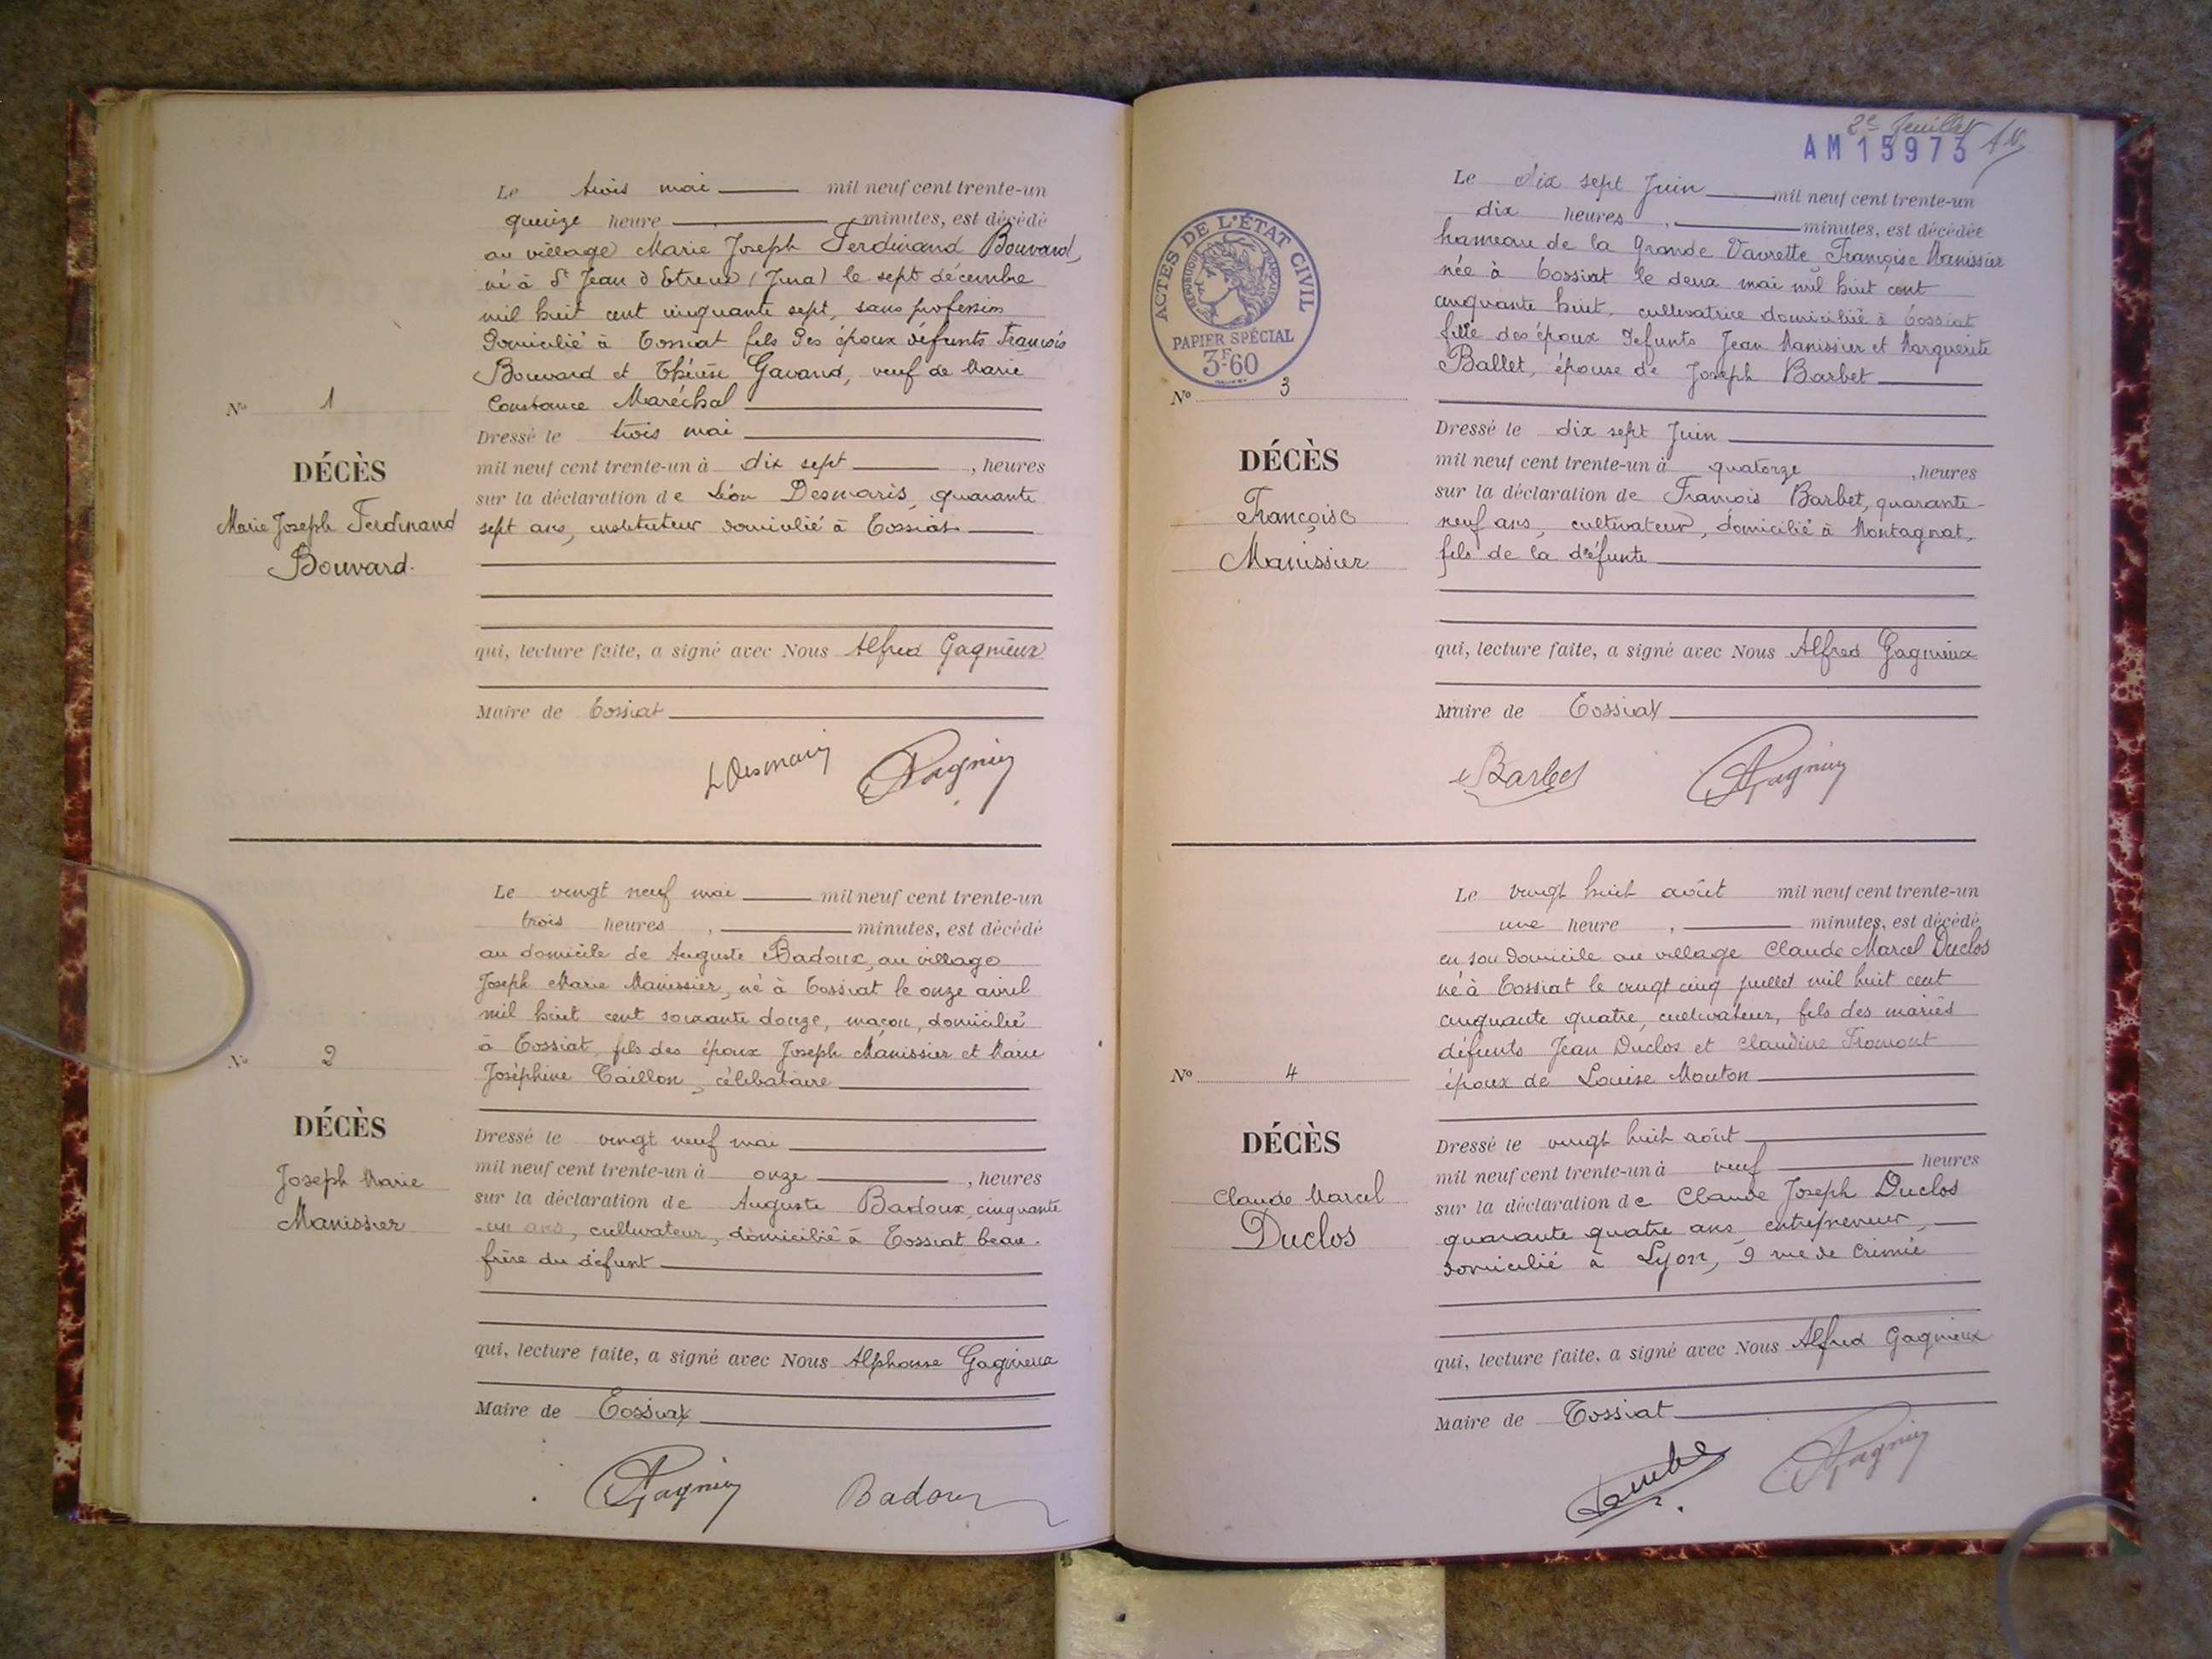 Le trois mai mil neuf cent trente-un
quinze heure , minutes, est décédé
au village Marie Joseph Ferdinand Bouvard,
né à St Jean d'Etreux (Jura) le sept décembre
mil huit cent cinquante sept, sans profession
Domicilié à Tossiat fils des époux défunts François
Bouvard et Thérèse Gavand, veuf de Marie
Constance Maréchal
N° 1
Dressé le trois mai
DÉCÈS
mil neuf cent trente-un à dix sept , heures
sur la déclaration de Léon Desmaris, quarante
Marie Joseph Ferdinand
sept ans, instituteur domicilié à Tossiat
Bouvard.
qui, lecture faite, a signé avec Nous Alfred Gagnieux
Maire de Tossiat
L Desmaris
Le vingt neuf mai mil neuf cent trente-un
trois heures , minutes, est décédé
au domicile de Auguste Badoux, au village
Joseph Marie Manissier, né à Tossiat le onze avril
mil huit cent soixante douze, maçon, domicilié
à Tossiat, fils des époux Joseph Manissier et Marie
N° 2
Joséphine Taillon, célibataire
DÉCÈS
Dressé le vingt neuf mai
mil neuf cent trente-un à onze , heures
Joseph Marie
sur la déclaration de Auguste Badoux, cinquante
Manissier
-un ans, cultivateur, domicilié à Tossiat beau-
frère du défunt
qui, lecture faite, a signé avec Nous Alphonse Gagnieux
Maire de Tossiat
Badoux
2e feuillet
AM 15973
Le dix sept Juin mil neuf cent trente-un
dix heures , minutes, est décédée
hameau de la Grande Vavrette Françoise Manissier
née à Tossiat le deux mai mil huit cent
cinquante huit, cultivatrice domiciliée à Tossiat
fille des époux défunts Jean Manissier et Marguerite
Ballet, épouse de Joseph Barbet
ACTES DE L'ÉTAT CIVIL
RÉPUBLIQUE FRANÇAISE
PAPIER SPÉCIAL
3F60
N° 3
Dressé le dix sept Juin
DÉCÈS
mil neuf cent trente-un à quatorze , heures
sur la déclaration de François Barbet, quarante-
Françoise
neuf ans, cultivateur, domicilié à Montagnat,
Manissier
fils de la défunte
qui, lecture faite, a signé avec Nous Alfred Gagnieux
Maire de Tossiat
Barbet
Le vingt huit août mil neuf cent trente-un
une heure , minutes, est décédé
en son domicile au village Claude Marcel Duclos
né à Tossiat le vingt cinq juillet mil huit cent
cinquante quatre, cultivateur, fils des mariés
défunts Jean Duclos et Claudine Fromont
N° 4
époux de Louise Mouton
DÉCÈS
Dressé le vingt huit août
mil neuf cent trente-un à neuf heures
Claude Marcel
sur la déclaration de Claude Joseph Duclos
Duclos
quarante quatre ans, entrepreneur,
domicilié à Lyon, 9 rue de Crimée
qui, lecture faite, a signé avec Nous Alfred Gagnieux
Maire de Tossiat